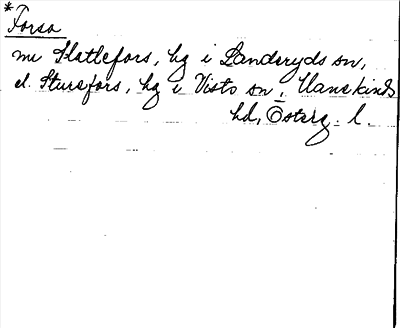 *Forsa
nu Slattefors, hg i Landeryds sn,
el. Sturefors, hg i Vists sn, Hanekinds
hd, Österg. l.